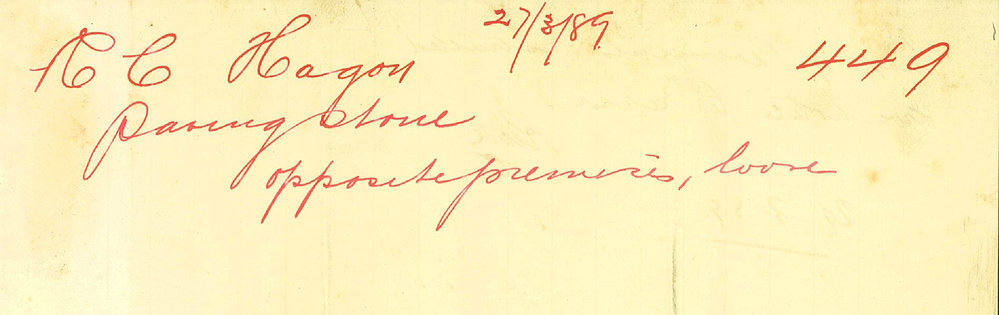 27/3/89
R C Hagon 449
Paving stone
opposite premises, loose